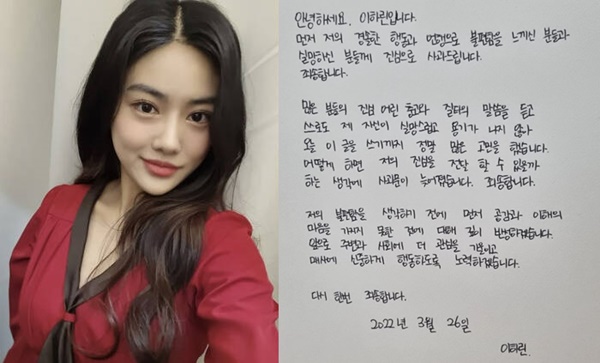 안녕하세요. 이하린입니다.
먼저 저의 경솔한 행동과 언행으로 불편함을 느끼신 분들과
실망하신 분들께 진심으로 사과드립니다.
죄송합니다.
많은 분들의 진심 어린 충고와 질타의 말씀을 듣고
스스로도 제 자신이 실망스럽고 용기가 나지 않아
오늘 이 글을 쓰기까지 정말 많은 고민을 했습니다.
어떻게 하면 저의 진심을 전달 할 수 있을까
하는 생각에 사과문이 늦어졌습니다. 죄송합니다.
저의 불편함을 생각하기 전에 먼저 공감과 이해의
마음을 가지지 못한 점에 대해 깊이 반성하겠습니다.
앞으로 주변과 사회에 더 관심을 기울이고
매사에 신중하게 행동하도록 노력하겠습니다.
다시 한번 죄송합니다.
2022년 3월 26일
이하린